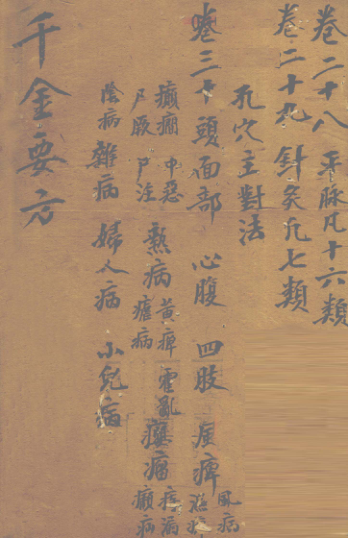 卷二十八 平脉凡十六類
卷二十九 針灸凡七類
孔穴主對法
卷三十頭面部 心腹 四肢 痹 風病
癲癇 中惡 尸厥 尸注 熱病 黃痺 瘧病 霍亂 癭瘤 癲病
陰病 雜病 婦人病 小兒病
千金要方